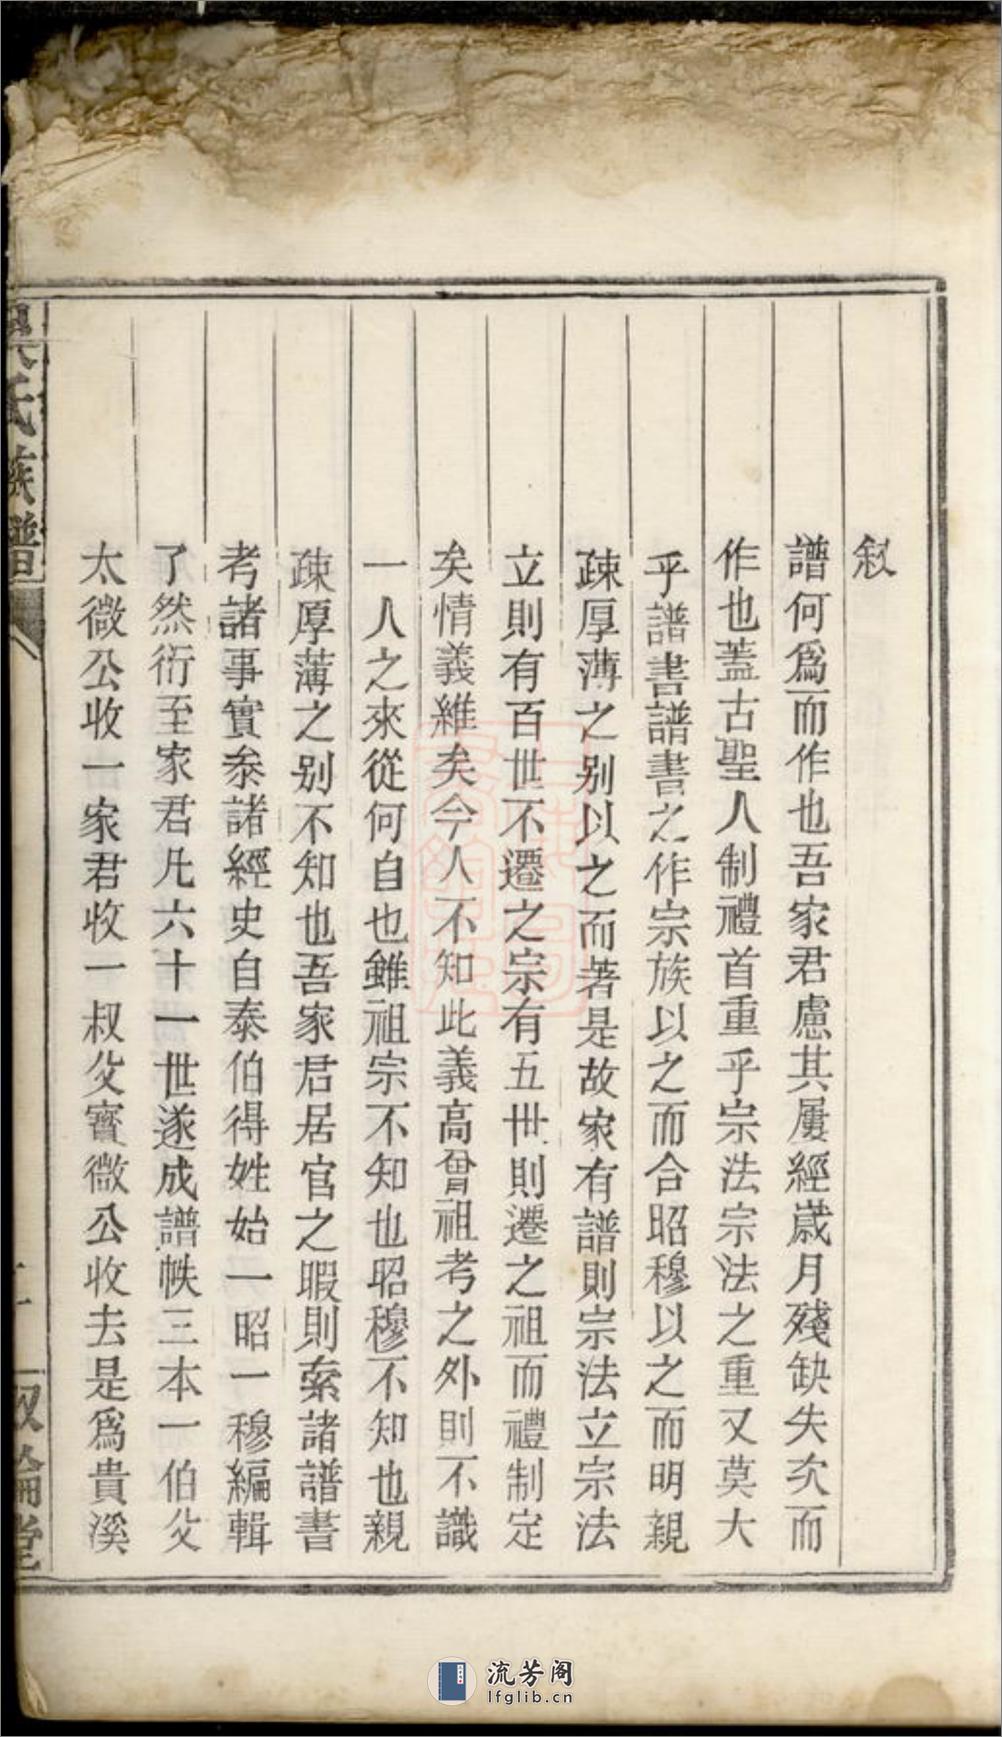 敍
譜何爲而作也吾家君慮其屢經歲月殘缺失次而
作也蓋古聖人制禮首重乎宗法宗法之重又莫大
乎譜書譜書之作宗族以之而合昭穆以之而明親
疎厚薄之别以之而著是故家有譜則宗法立宗法
立則有百世不遷之宗有五世則遷之祖而禮制定
矣情義維矣今人不知此義高曾祖考之外則不識
一人之來從何自也雖祖宗不知也昭穆不知也親
疎厚薄之别不知也吾家君居官之暇則索諸譜書
考諸事實叅諸經史自泰伯得姓始一昭一穆編輯
了然衍至家君凡六十一世遂成譜帙三本一伯父
太微公收一家君收一叔父賓微公收去是爲貴溪
吳氏族譜
流芳阁
lfglib.cn